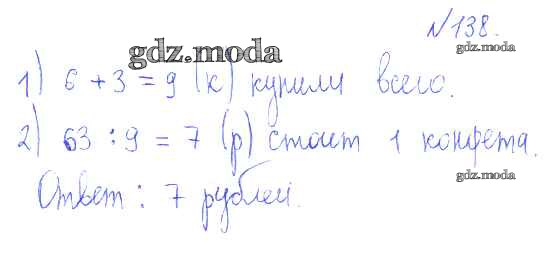 №138.
gdz.moda
gdz.moda
1) 6 + 3 = 9 (к) купили всего.
2) 63 : 9 = 7 (р) стоит 1 конфета.
gdz.moda
Ответ: 7 рублей.